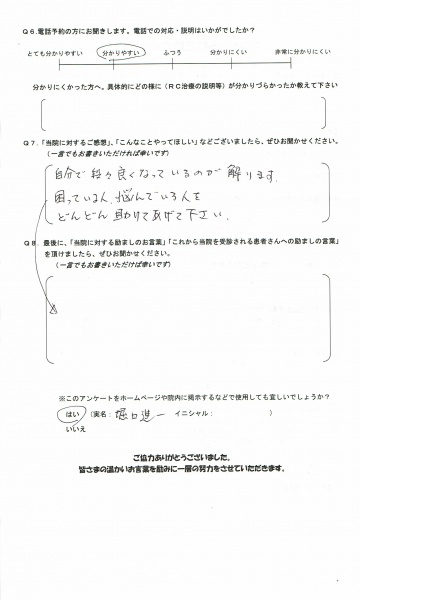 Q6.電話予約の方にお聞きします。電話での対応・説明はいかがでしたか？
とても分かりやすい 分かりやすい ふつう 分かりにくい 非常に分かりにくい
分かりにくかった方へ。具体的にどの様に（RC治療の説明等）が分かりづらかったか教えて下さい
Q7.「当院に対するご感想」、「こんなことやってほしい」などございましたら、ぜひお聞かせください。
（一言でもお書きいただければ幸いです）
自分で段々良くなっているのが解ります.
困っている人、悩んでいる人を
どんどん助けてあげて下さい.
Q8.最後に、「当院に対する励ましのお言葉」「これから当院を受診される患者さんへの励ましの言葉」
を頂けましたら、ぜひお聞かせください。
（一言でもお書きいただけば幸いです）
※このアンケートをホームページや院内に掲示するなどで使用しても宜しいでしょうか？
はい （実名：堀口進一 イニシャル： ）
いいえ
ご協力ありがとうございました。
皆さまの温かいお言葉を励みに一層の努力をさせていただきます。